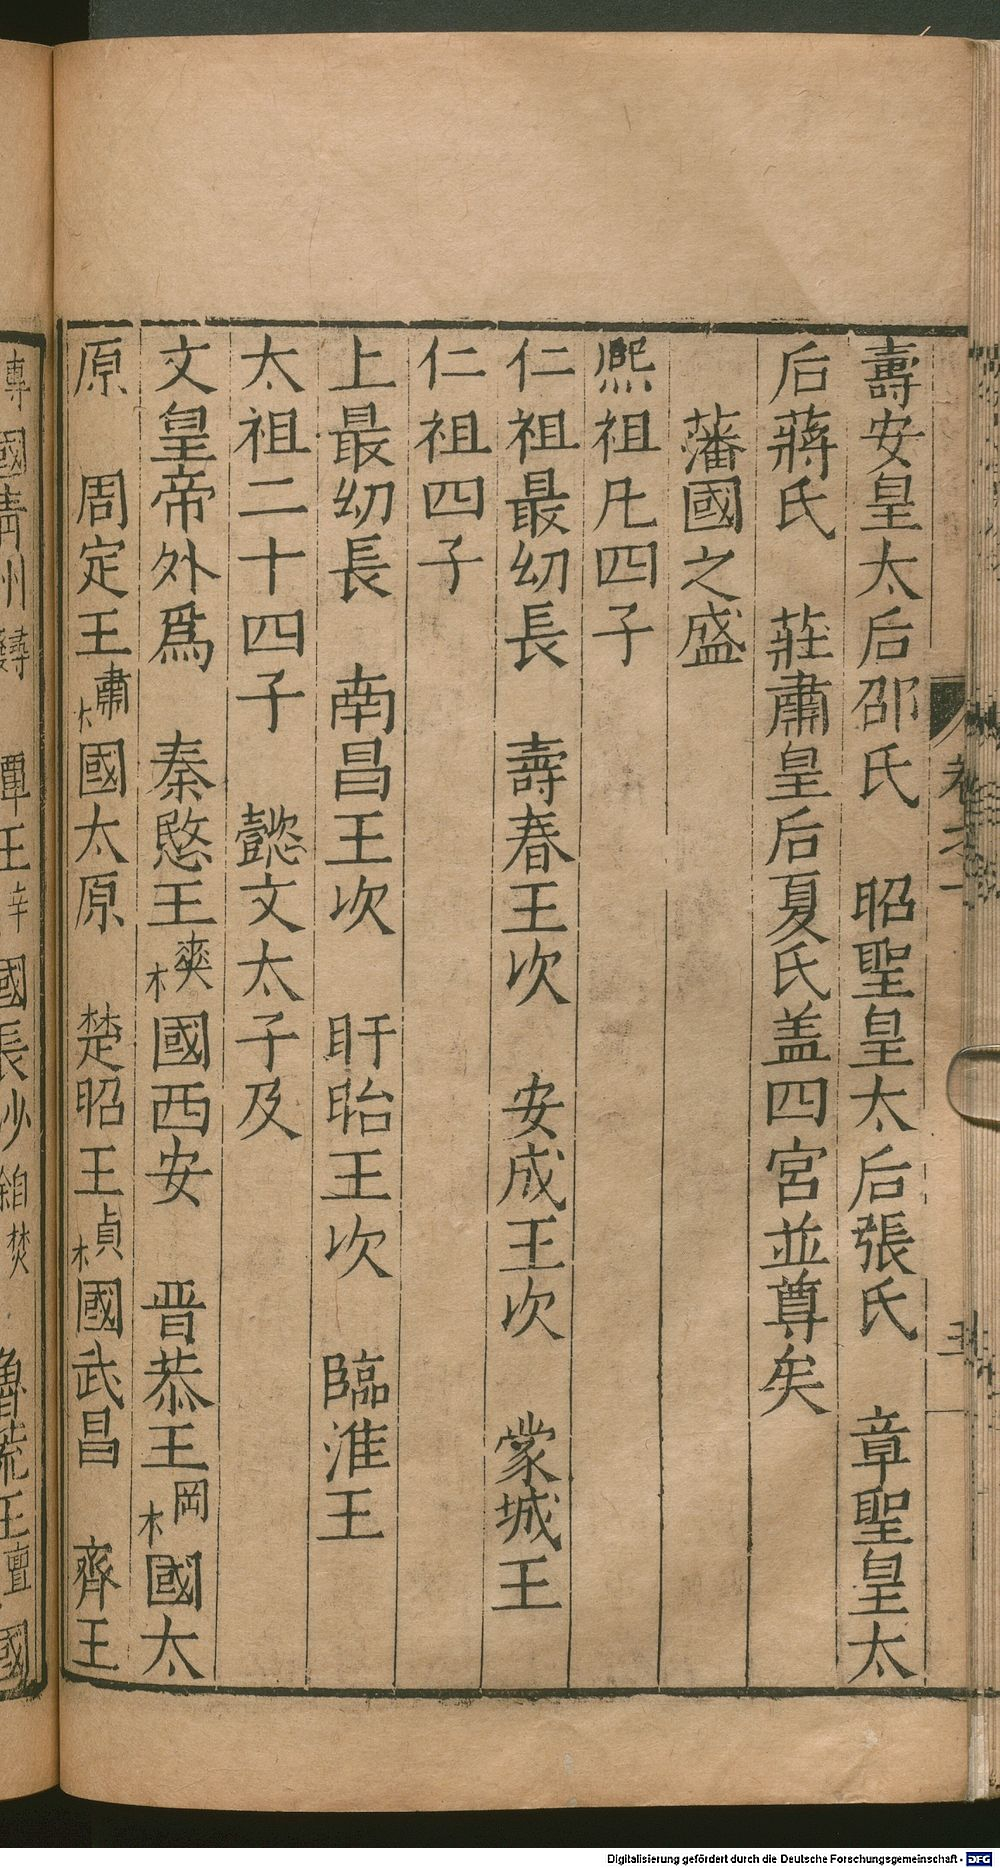 壽安皇太后邵氏　昭聖皇太后張氏　章聖皇太
后蔣氏　莊肅皇后夏氏盖四宮並尊矣
藩國之盛
熙祖凡四子
仁祖最㓜長　壽春王次　安成王次　蒙城王
仁祖四子
上最㓜長　南昌王次　盱眙王次　臨淮王
太祖二十四子　懿文太子及
文皇帝外爲　秦愍王木爽國西安　晋恭王木岡國太
原　周定王木肅國太原　楚昭王木貞國武昌　齊王
國青州　潭王　國長沙　魯荒王　國
Digitalisierung gefördert durch die Deutsche Forschungsgemeinschaft - DFG